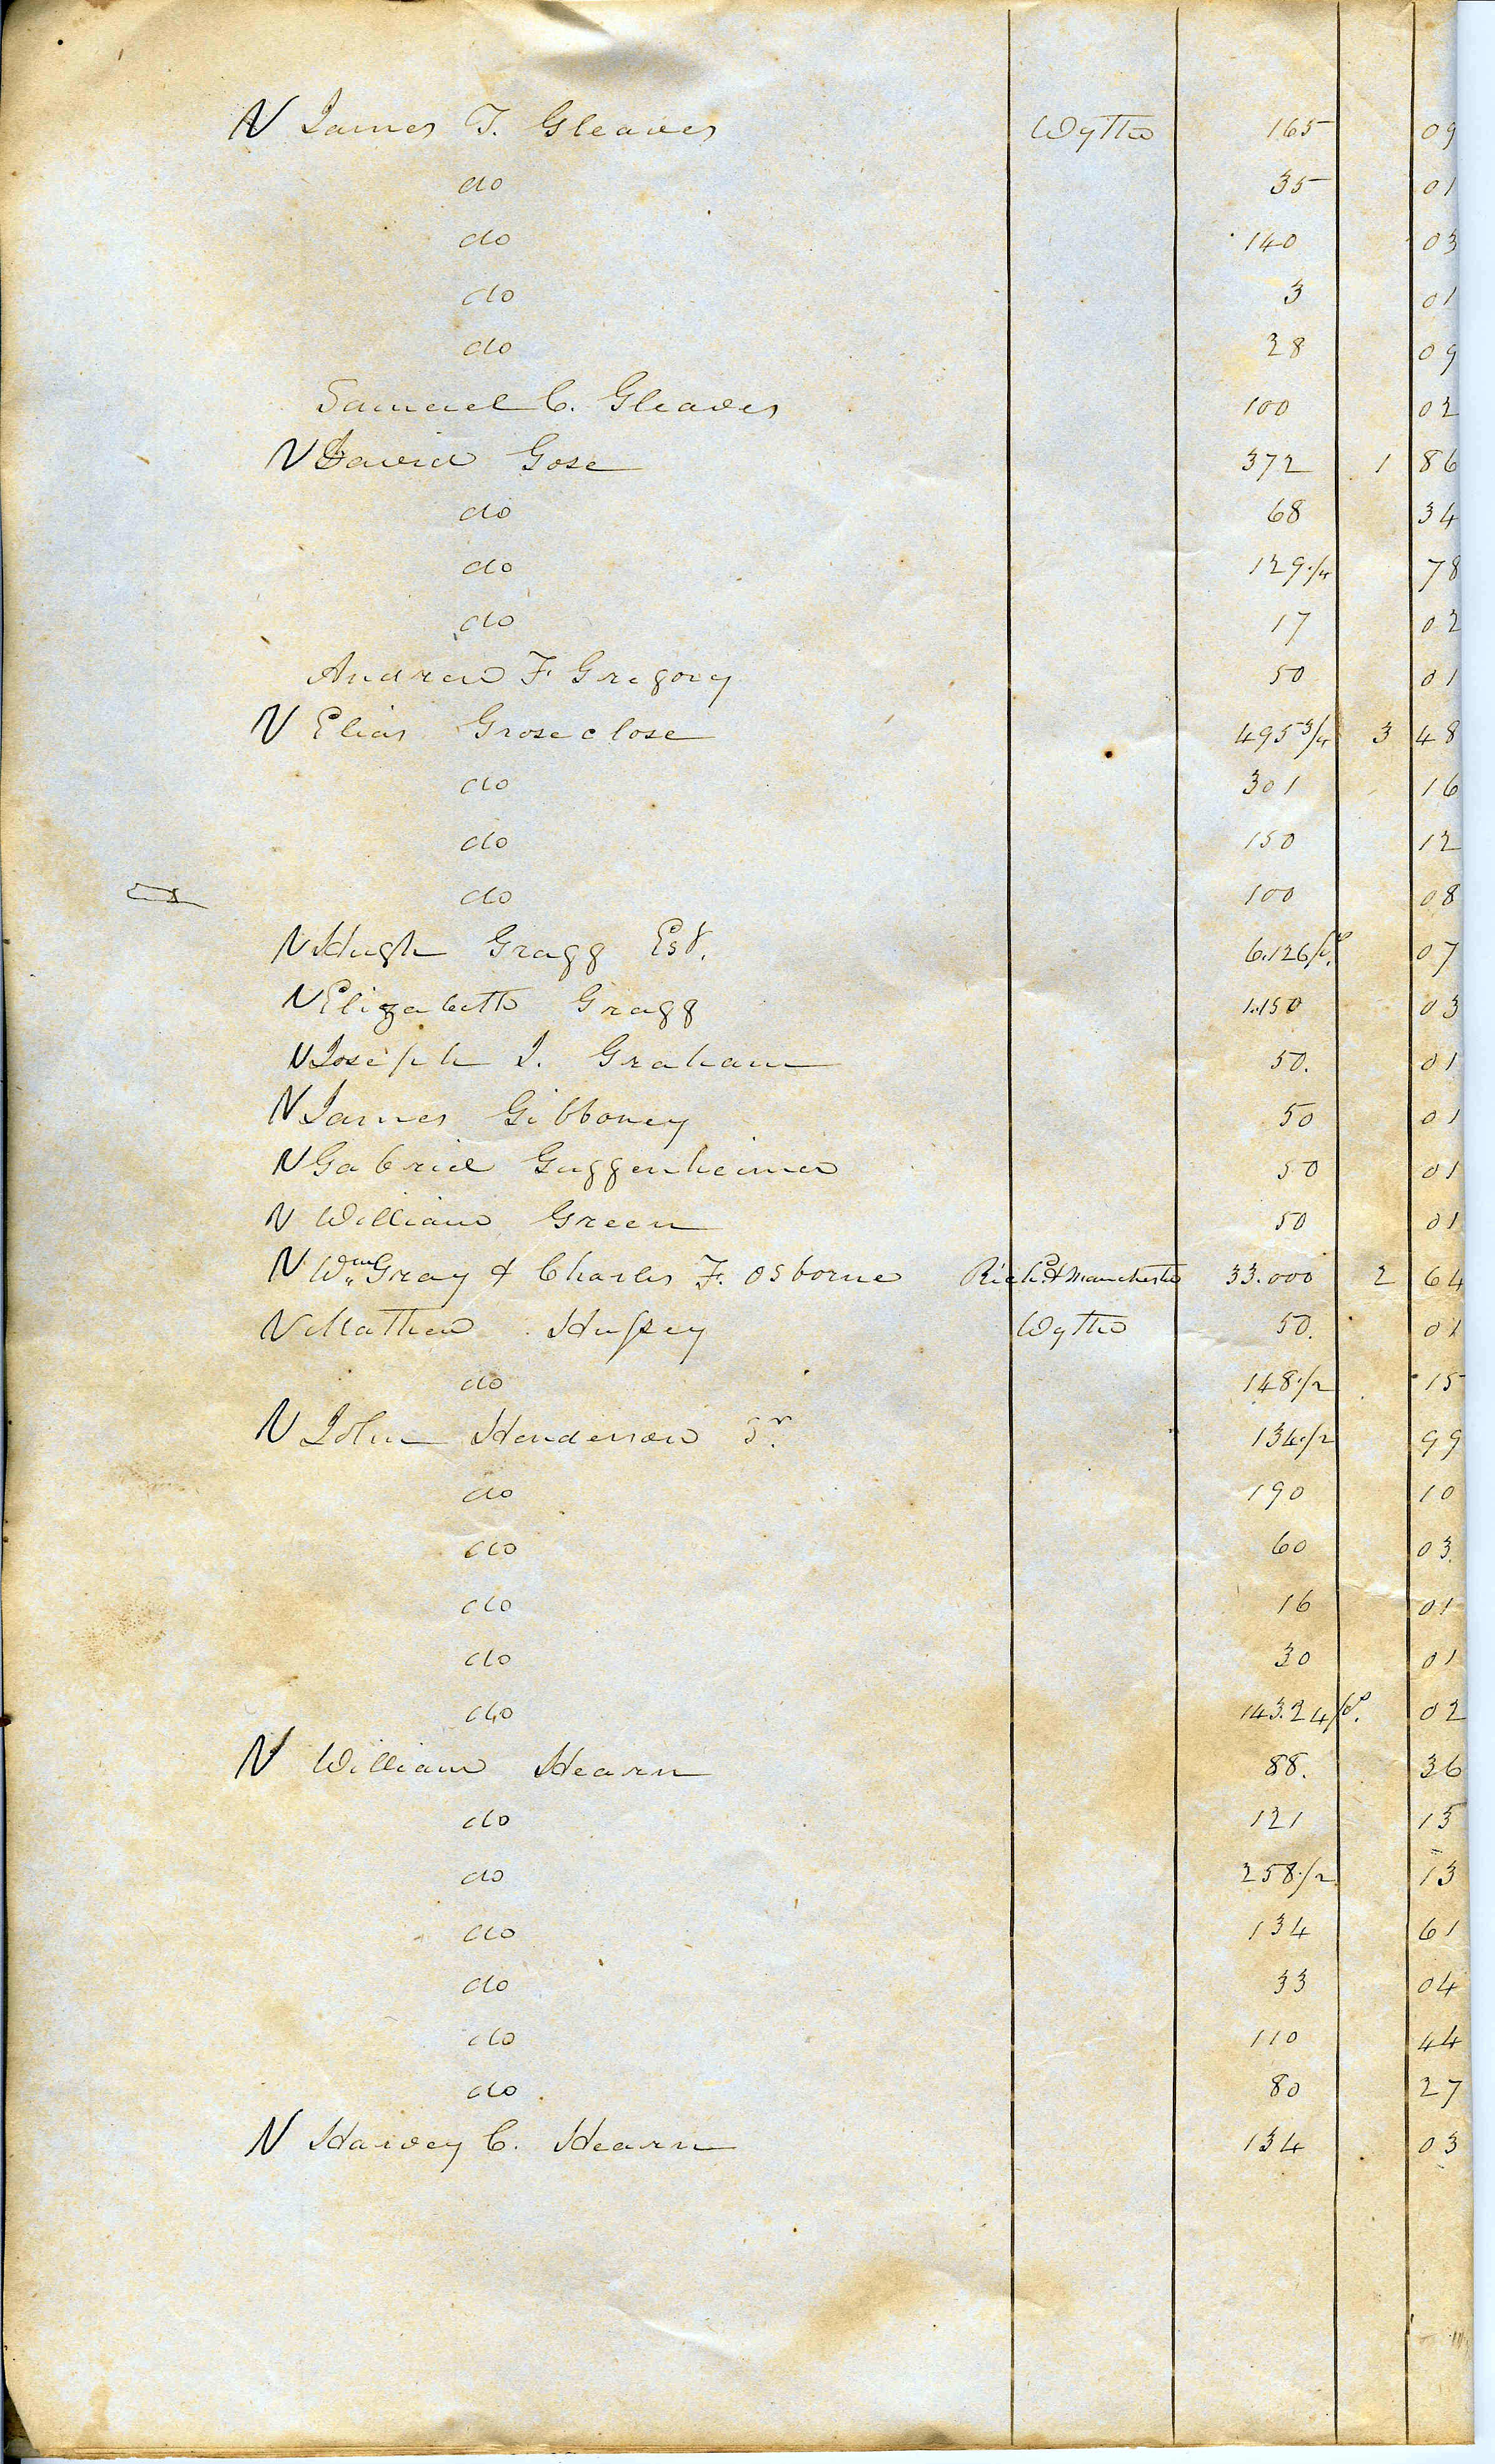 N James T. Gleaves Wythe 165 09
do 35 01
do 140 03
do 3 01
do 28 09
Samuel C. Gleaves 100 02
N David Gose 372 1 86
do 68 34
do 129 1/4 78
do 17 02
Andrew F Gregory 50 01
N Elias Groseclose 495 3/4 3 48
do 301 16
do 150 12
do 100 08
N Hugh Gragg Est. 6.126 07
N Elizabeth Gragg 1.150 03
N Joseph J. Graham 50. 01
N James Gibboney 50 01
N Gabriel Guggenheimer 50 01
N William Green 50 01
N Wm Gray & Charles F. Osborne Richd & Manchester 33.000 2 64
N Mathew Hussey Wythe 50. 01
do 148 1/2 15
N John Henderson Sr. 134 1/2 99
do 190 10
do 60 03
do 16 01
do 30 01
do 143.24 02
N William Hearn 88. 36
do 121 15
do 258 1/2 13
do 134 61
do 33 04
do 110 44
do 80 27
N Harvey C. Hearn 134 03